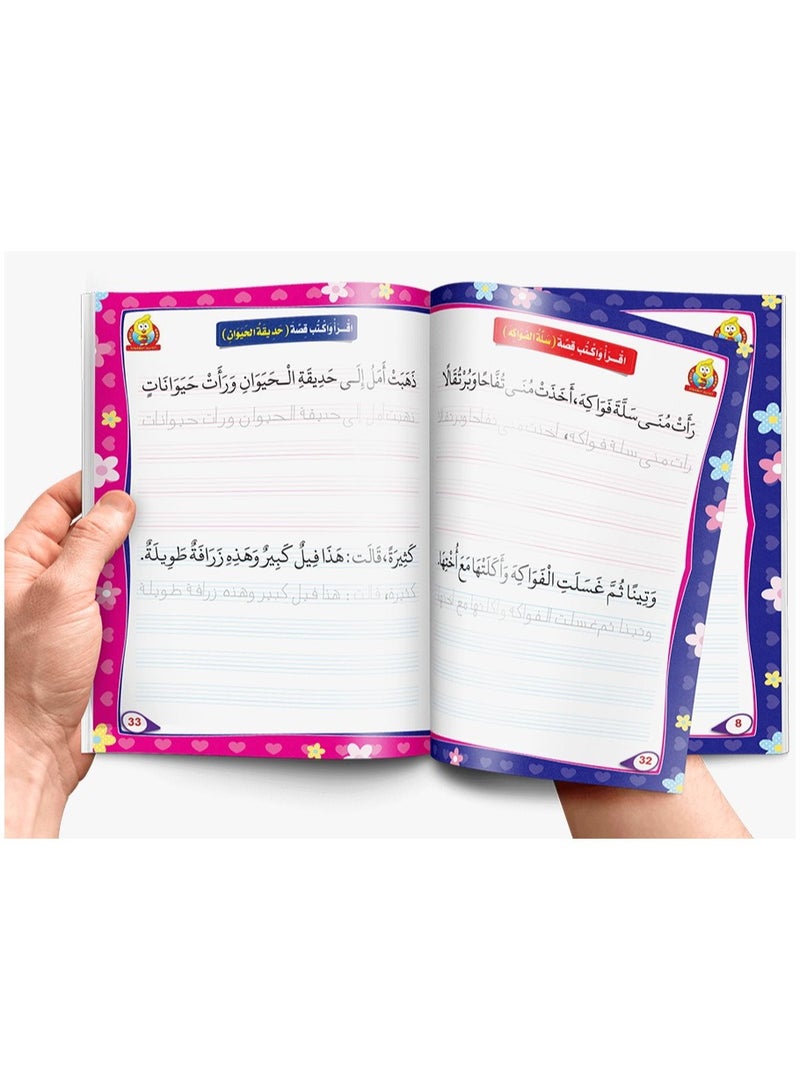 اقْرَأْ وَاكْتُبْ قِصَّة ( سَلَّةُ الفَوَاكِهِ )
رَأَتْ مُنَى سَلَّةَ فَوَاكِهَ، أَخَذَتْ مُنَى تُفَّاحًا وَبُرْتُقَالًا
رأت منى سلة فواكه، أخذت منى تفاحا وبرتقالا
وَتِينًا ثُمَّ غَسَلَتِ الْفَوَاكِهَ وَأَكَلَتْهَا مَعَ أُخْتِهَا.
وتينا ثم غسلت الفواكه وأكلتها مع أختها
32
8
اقْرَأْ وَاكْتُبْ قِصَّة ( حَدِيقَةُ الحَيَوَان )
ذَهَبَتْ أَمَلُ إِلَى حَدِيقَةِ الْحَيَوَانِ وَرَأَتْ حَيَوَانَاتٍ
ذهبت أمل إلى حديقة الحيوان ورأت حيوانات
كَثِيرَةً، قَالَت : هَذَا فِيلٌ كَبِيرٌ وَهَذِهِ زَرَافَةٌ طَوِيلَةٌ.
كثيرة، قالت : هذا فيل كبير وهذه زرافة طويلة
33